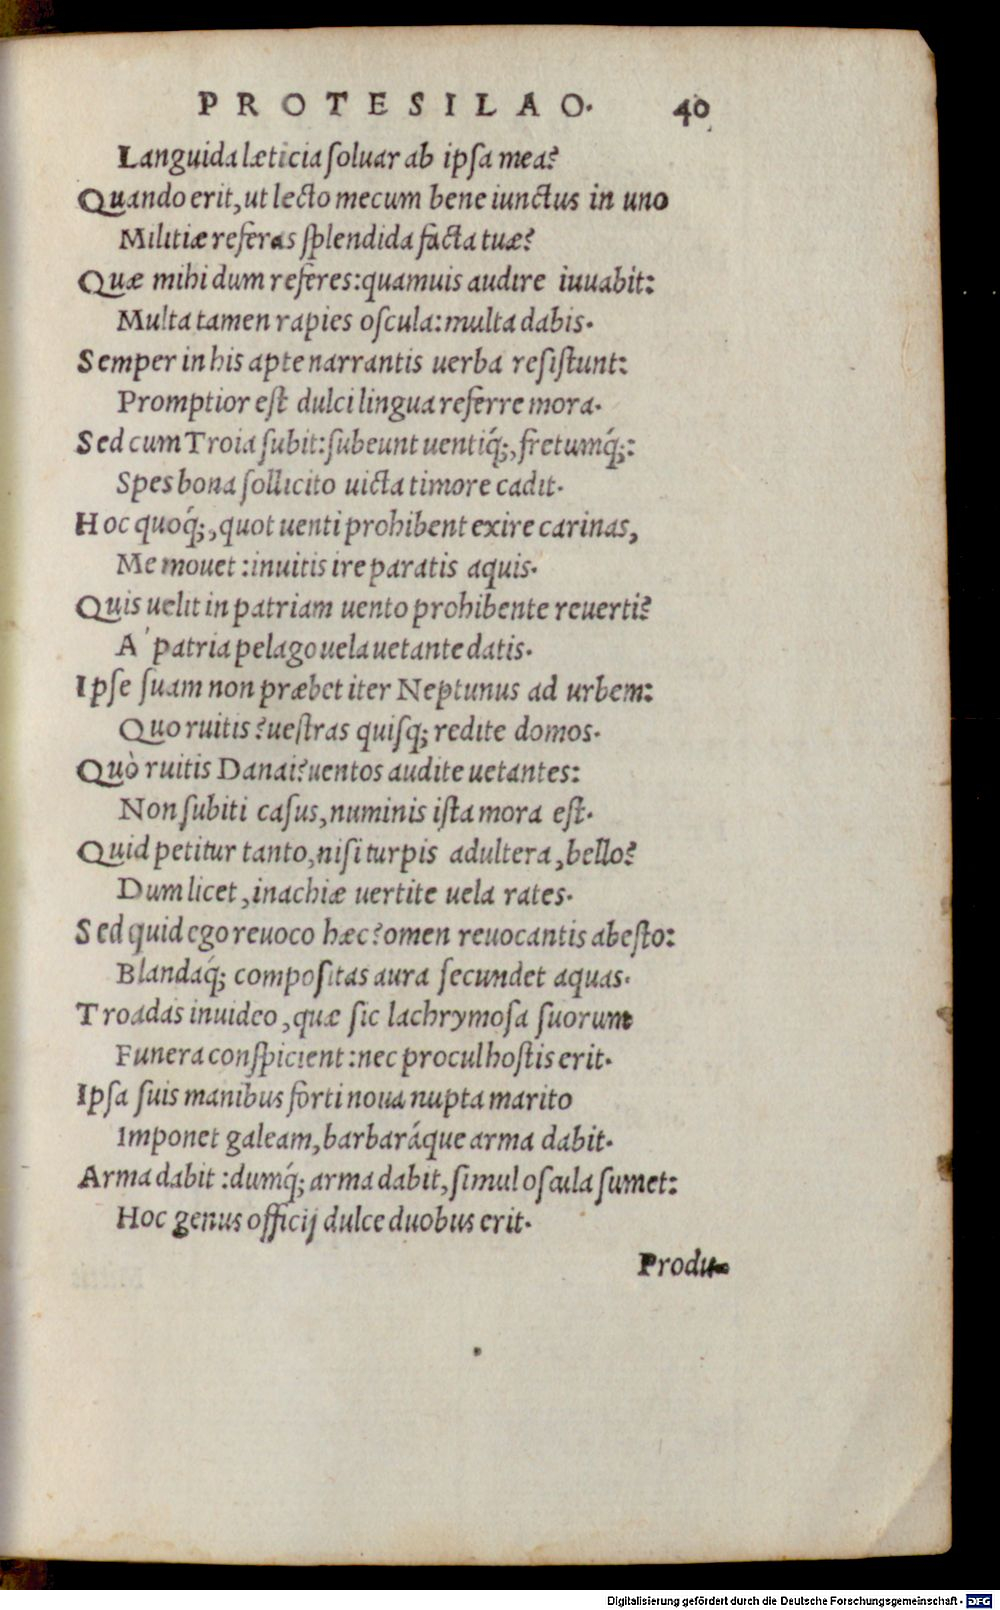 PROTESILAO. 40
Languida læticia soluar ab ipsa mea?
Quando erit, ut lecto mecum bene iunctus in uno
Militiæ referas splendida facta tuæ?
Quæ mihi dum referes: quamuis audire iuuabit:
Multa tamen rapies oscula: multa dabis.
Semper in his apte narrantis uerba resistunt:
Promptior est dulci lingua referre mora.
Sed cum Troia subit: subeunt uentiq́;, fretumq́;:
Spes bona sollicito uicta timore cadit.
Hoc quoq́;, quot uenti prohibent exire carinas,
Me mouet: inuitis ire paratis aquis.
Quis uelit in patriam uento prohibente reuerti?
A' patria pelago uela uetante datis.
Ipse suam non præbet iter Neptunus ad urbem:
Quo ruitis? uestras quisq; redite domos.
Quò ruitis Danai? uentos audite uetantes:
Non subiti casus, numinis ista mora est.
Quid petitur tanto, nisi turpis adultera, bello?
Dum licet, inachiæ uertite uela rates.
Sed quid ego reuoco hæc? omen reuocantis abesto:
Blandaq́; compositas aura secundet aquas.
Troadas inuideo, quæ sic lachrymosa suorum
Funera conspicient: nec procul hostis erit.
Ipsa suis manibus forti noua nupta marito
Imponet galeam, barbaráque arma dabit.
Arma dabit: dumq́; arma dabit, simul oscula sumet:
Hoc genus officij dulce duobus erit.
Produ-
Digitalisierung gefördert durch die Deutsche Forschungsgemeinschaft - DFG